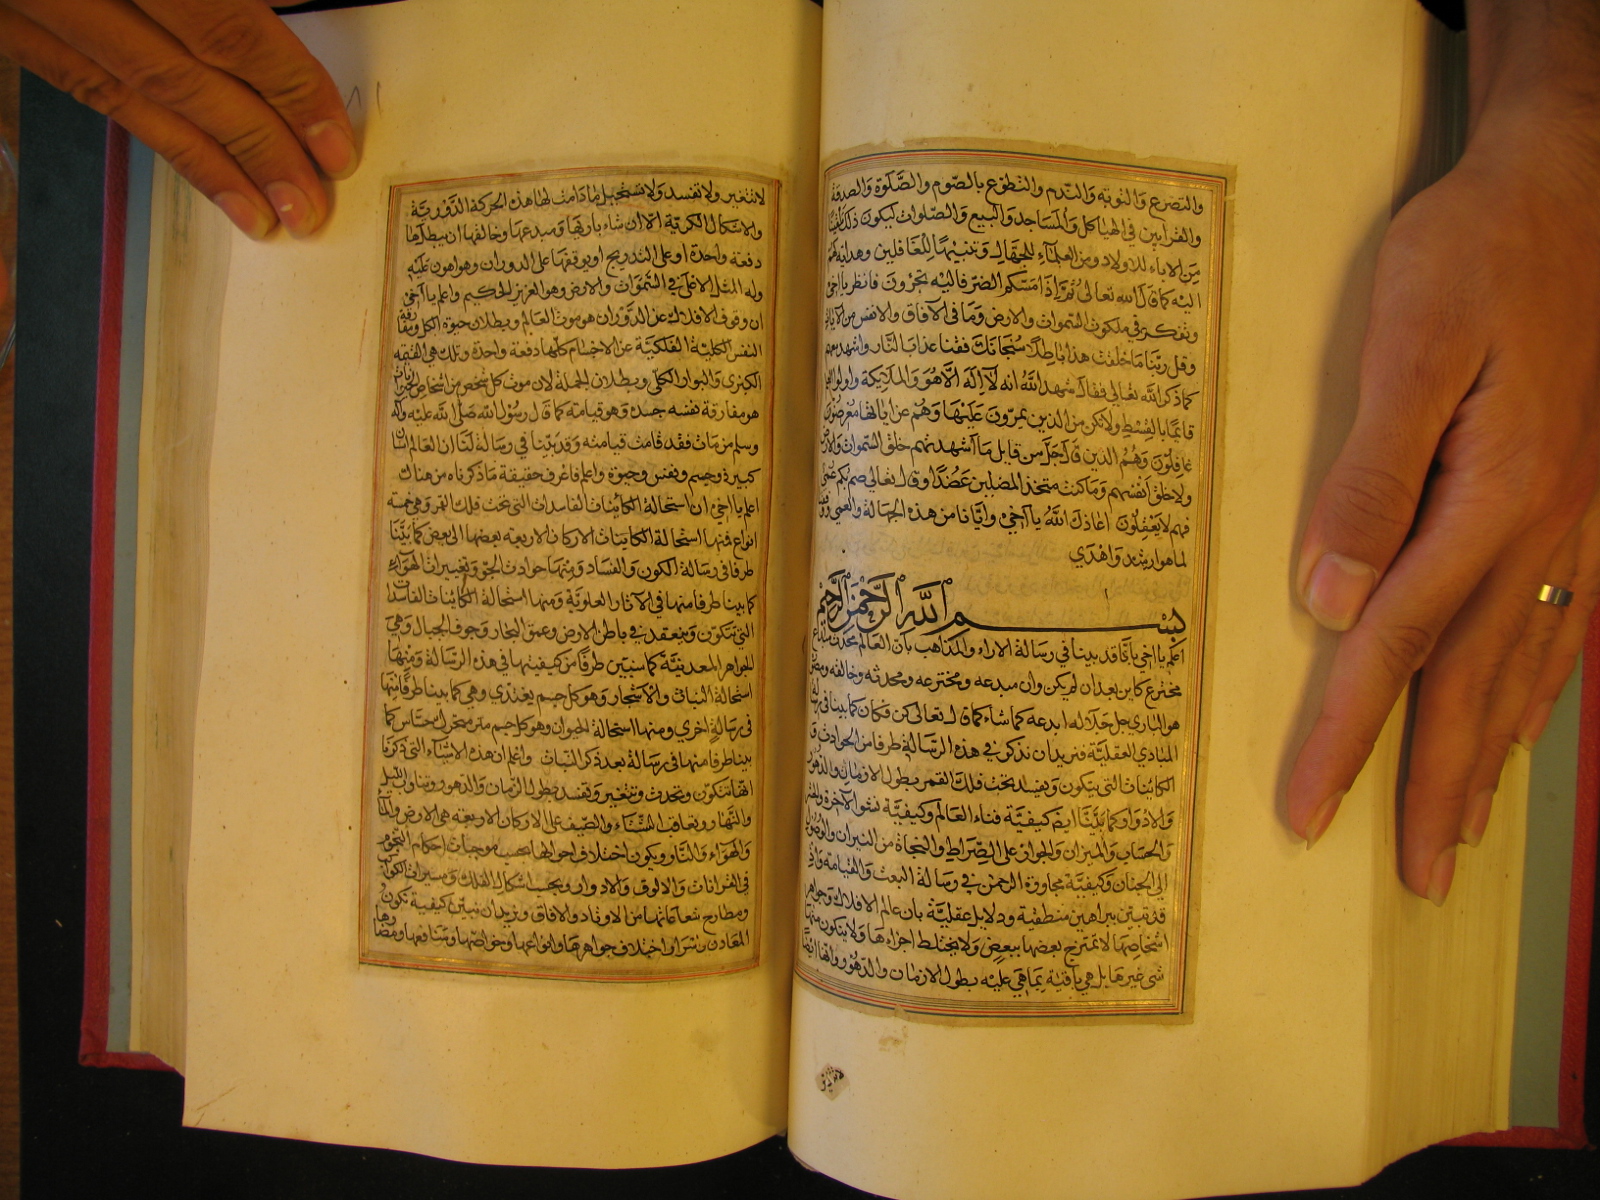 والتضرع والتوبة والندم والتطوع بالصوم والصلوة والصدقة
والقرابين في الهياكل والمساجد والبيع والصلوات ليكون ذلك تلقينا
من الاباء للاولاد ومن العلماء للجهال وتنبيها للغافلين وهداية لهم
اليه كما قال الله تعالى ثم إذا مسكم الضر فاليه تجرون فانظر يا اخي
وتفكر في ملكوت السموات والارض وما في الآفاق والانفس من الآيات
وقل ربنا ما خلقت هذا باطلا سبحانك فقنا عذاب النار واشهد معهم
كما ذكر الله تعالى فقال شهد الله انه لا اله الا هو والملايكة واولوا العلم
قايما بالقسط ولا تكن من الذين يمرون عليها وهم عن اياتها معرضون
غافلون وهم الذين قال جل من قايل ما اشهدتهم خلق السموات والارض
ولا خلق انفسهم وما كنت متخذ المضلين عضدا وقال تعالى صم بكم عمى
فهم لا يعقلون اعاذك الله يا اخي وايانا من هذه الجهالة والعمى ووفق
لما هو ارشد واهدي
بسم الله الرحمن الرحيم
اعلم يا اخي بانا قد بينا في رسالة الاراء والمذاهب بأن العالم محدث مبدع
مخترع كاين بعد ان لم يكن وان مبدعه ومخترعه ومحدثه وخالقه ومصوره
هو الباري جل جلاله ابدعه كما شاء كما قال تعالى كن فكان كما بينا في رسالة
المبادي العقلية فنريد ان نذكر في هذه الرسالة طرفا من الحوادث
الكائينات التى يتكون ويفسد تحت فلك القمر بطول الازمان والدهور
والادوار كما بينا ايضا كيفية فناء العالم وكيفية نشو الآخرة
والحساب والميزان والجواز على الصراط والنجاة من النيران والوصول
الى الجنان وكيفية مجاورة الرحمن في رسالة البعث والقيامة
قد تبين ببراهين منطقية ودلايل عقلية بان عالم الافلاك وجواهر
اشخاصها لا تمتزج بعضها ببعض ولا يختلط اجزاءها ولا يتكون منها
شى غيرها بل هي باقية بما هي عليه بطول الازمان والدهور وانها ايضا
لا تتغير ولا تفسد ولا تستحيل ما دامت لها هذه الحركة الدورية
والاشكال الكرية الا ان شاء باريها ومبدعها وخالقها ان يبطلها
دفعة واحدة او على التدريج او يوقفها على الدوران وهو اهون عليه
وله المثل الاعلى في السموات والارض وهو العزيز الحكيم واعلم يا اخي
ان وقوف الافلاك عن الدوران هو موت العالم وبطلان حيوة الكل ومفارقة
النفس الكلية الفلكية عن الاجسام كلها دفعة واحدة وتلك هي القيمة
الكبرى والبوار الكلي وبطلان الجملة لان موت كل شخص من اشخاص الحيوانات
هو مفارقة نفسه جسده وهو قيامته كما قال رسول الله صلى الله عليه وآله
وسلم من مات فقد قامت قيامته وقد بينا في رسالة لنا ان العالم انسان
كبير ذو جسم ونفس وحيوة واعلم فاعرف حقيقة ما ذكرناه من هناك
اعلم يا اخي ان استحالة الكائينات الفاسدات التي تحت فلك القمر وهي خمسة
انواع فمنها استحالة الكاينات الاركان الاربعة بعضها الى بعض كما بينا
طرفا في رسالة الكون والفساد ومنها حوادث الجو وتغييرات الهواء
كما بينا طرفا منها في الآثار العلوية ومنها استحالة الكائينات الفاسدات
التي تتكون وينعقد في باطن الارض وعمق البحار وجوف الجبال وهي
الجواهر المعدنية كما سنبين طرفا من كيفيتها في هذه الرسالة ومنها
استحالة النبات والاشجار وهو كل جسم يغتذي وهي كما بينا طرفا منها
في رسالة اخري ومنها استحالة الحيوان وهو كل جسم متحرك حساس كما
بينا طرفا منها في رسالة بعد ذكر النبات واعلم ان هذه الاشياء التي ذكرنا
انها تتكون وتحدث وتتغير وتفسد بطول الزمان والدهور وتناوب الليل
والنهار وتعاقب الشتاء والصيف على الاركان الاربعة هي الارض والماء
والهواء والنار ويكون اختلاف احوالها بحسب موجبات احكام النجوم
في القرانات والالوف والادوار وبحسب اشكال الفلك ومسيرات الكواكب
ومطارح شعاعاتها من الاوتاد والافاق ونريد ان نبين كيفية تكون
المعادن واختلاف جواهرها وانواعها وخواصها ومنافعها ومضارها